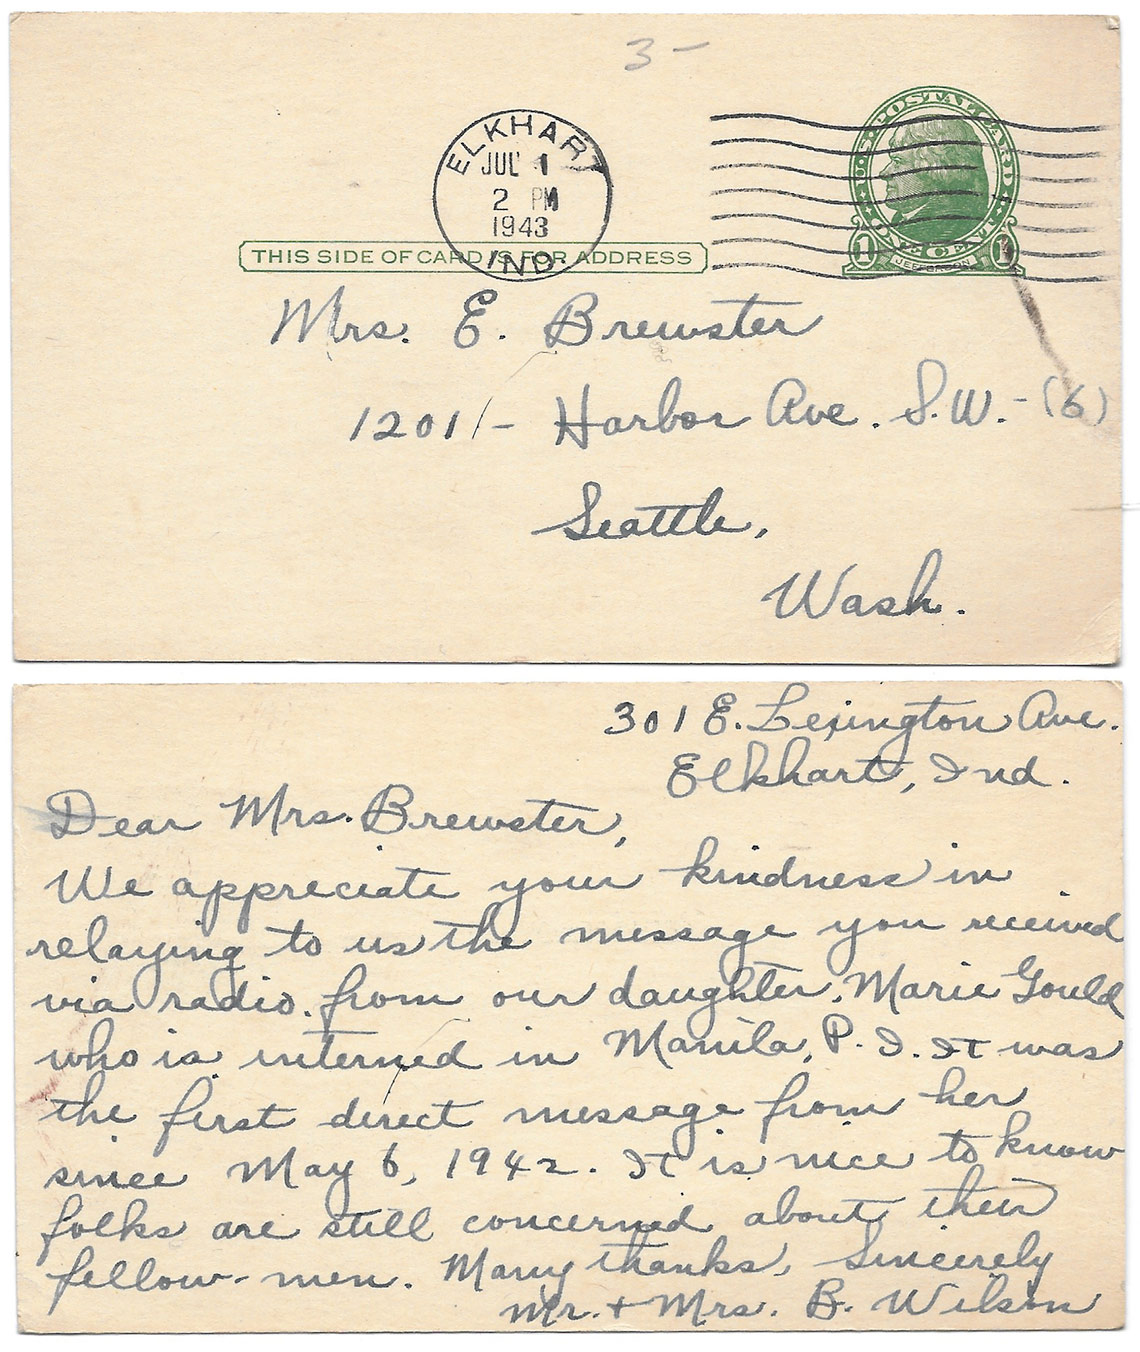 3-
U.S. POSTAL CARD
ELKHART
JUL 1
2 PM
1943
IND.
1 CENT 1
JEFFERSON
THIS SIDE OF CARD IS FOR ADDRESS
Mrs. E. Brewster
1201/- Harbor Ave. S.W. - (6)
Seattle,
Wash.
301 E. Lexington Ave.
Elkhart, Ind.
Dear Mrs. Brewster,
We appreciate your kindness in
relaying to us the message you received
via radio. from our daughter, Marie Gould
who is interned in Manila, P. I. It was
the first direct message from her
since May 6, 1942. It is nice to know
folks are still concerned about their
fellow-men. Many thanks, Sincerely
Mr. + Mrs. B. Wilson